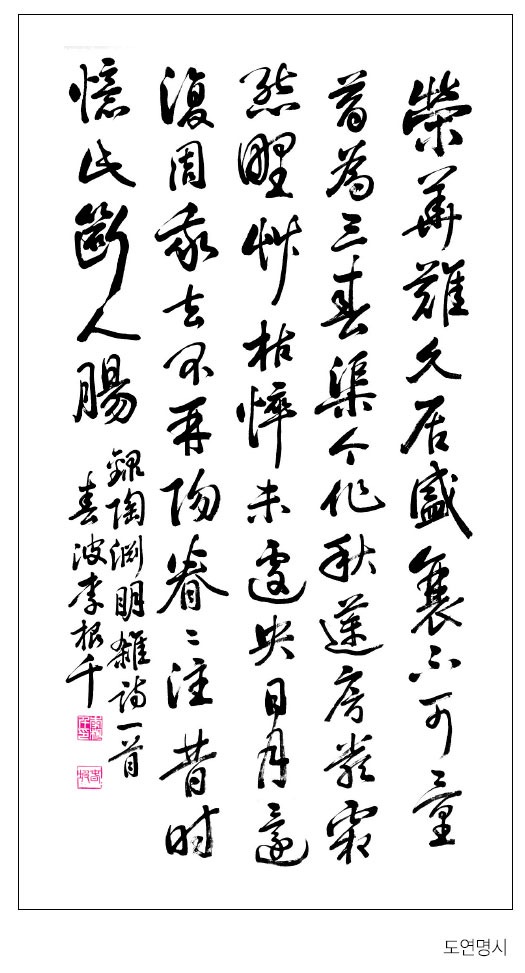 榮華難久居盛衰不可量
昔為三春渠今作秋蓮房嚴霜
結野草枯悴未遽央日月還
復周我去不再陽眷〻往昔時
憶此斷人腸
錄陶淵明雜詩一首
春波李根千
도연명시